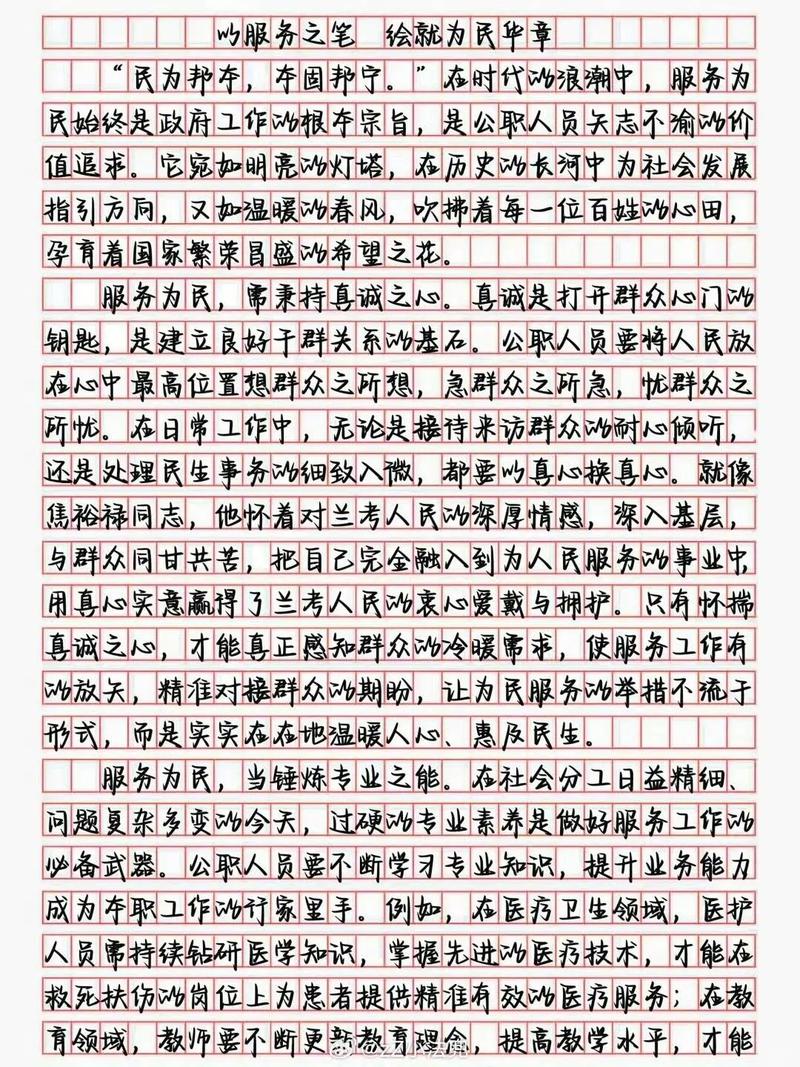 以服务之笔 绘就为民华章
“民为邦本，本固邦宁。”在时代的浪潮中，服务为
民始终是政府工作的根本宗旨，是公职人员矢志不渝的价
值追求。它宛如明亮的灯塔，在历史的长河中为社会发展
指引方向，又如温暖的春风，吹拂着每一位百姓的心田，
孕育着国家繁荣昌盛的希望之花。
服务为民，需秉持真诚之心。真诚是打开群众心门的
钥匙，是建立良好干群关系的基石。公职人员要将人民放
在心中最高位置想群众之所想，急群众之所急，忧群众之
所忧。在日常工作中，无论是接待来访群众的耐心倾听，
还是处理民生事务的细致入微，都要以真心换真心。就像
焦裕禄同志，他怀着对兰考人民的深厚情感，深入基层，
与群众同甘共苦，把自己完全融入到为人民服务的事业中，
用真心实意赢得了兰考人民的衷心爱戴与拥护。只有怀揣
真诚之心，才能真正感知群众的冷暖需求，使服务工作有
的放矢，精准对接群众的期盼，让为民服务的举措不流于
形式，而是实实在在地温暖人心、惠及民生。
服务为民，当锤炼专业之能。在社会分工日益精细、
问题复杂多变的今天，过硬的专业素养是做好服务工作的
必备武器。公职人员要不断学习专业知识，提升业务能力
成为本职工作的行家里手。例如，在医疗卫生领域，医护
人员需持续钻研医学知识，掌握先进的医疗技术，才能在
救死扶伤的岗位上为患者提供精准有效的医疗服务；在教
育领域，教师要不断更新教育理念，提高教学水平，才能